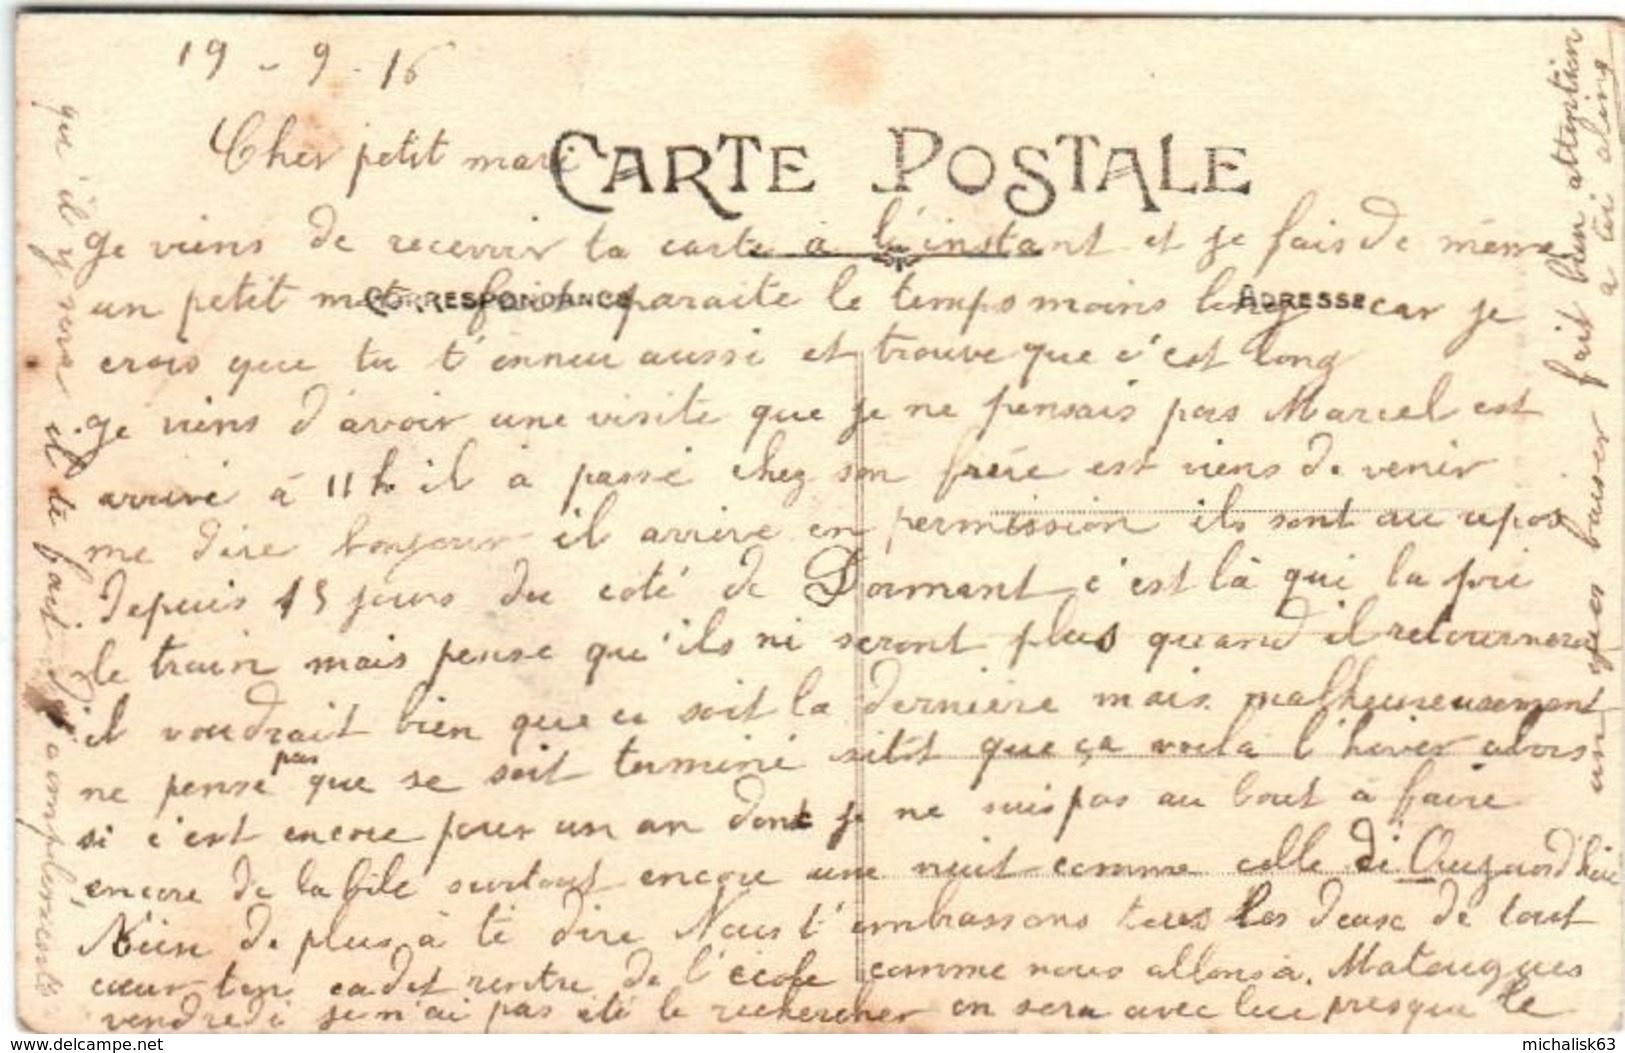 19 - 9 - 16
Cher petit mari
CARTE POSTALE
Je viens de recevoir ta carte à l'instant et je fais de même
CORRESPONDANCE
ADRESSE
un petit mot fait paraite le temps moins long car je
crois que tu t'ennui aussi et trouve que c'est long
Je viens d'avoir une visite que je ne pensais pas Marcel est
arrivé à 11 h il à passé chez son frère est viens de venir
me dire bonjour il arrive en permission ils sont au repos
depuis 15 jours du coté de Dormant c'est là qui la pri
le train mais pense qu'ils ni seront plus quand il retournera
il voudrait bien que ce soit la dernière mais malheureusement
ne pense pas que se soit terminé sitôt que ça voila l'hiver alors
si c'est encore pour un an dont je ne suis pas au bout à faire
encore de la bile surtout encore une nuit comme celle di Aujourd'hui
Rien de plus à te dire Nous t'embrassons tous les deux de tout
cœur ton cadet rentre de l'école comme nous allons à Matougues
vendredi je n'ai pas été le rechercher en sera avec lui presque le
que il y sera il te fait
complimente
un gros baiser fait bien attention
a toi
www.delcampe.net
michalisk63